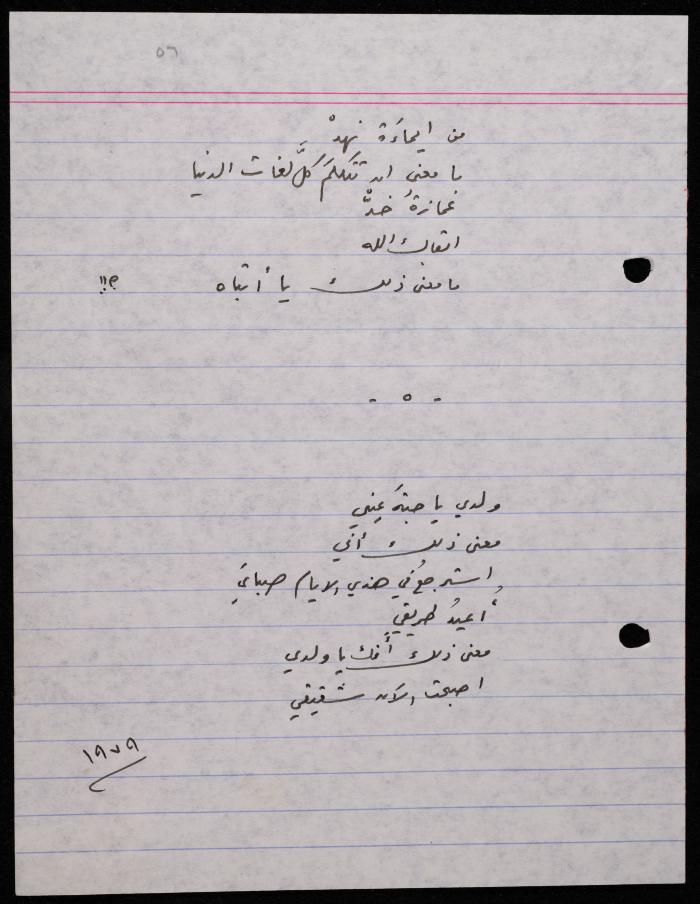 ٥٦
من ايماءَة نهدْ
ما معنى ان تتكلمَ كلَّ لغات الدنيا
غمازةُ خدّْ
اتقاك الله
ما معنى ذلك يا أبتاه ؟!!
- ٥ -
ولدي يا حبّة عيني
معنى ذلك أني
استرجعُ في هذي الايام صبايَ
أُعيدُ طريقي
معنى ذلك أنك يا ولدي
اصبحت الآن شقيقي
١٩٧٩